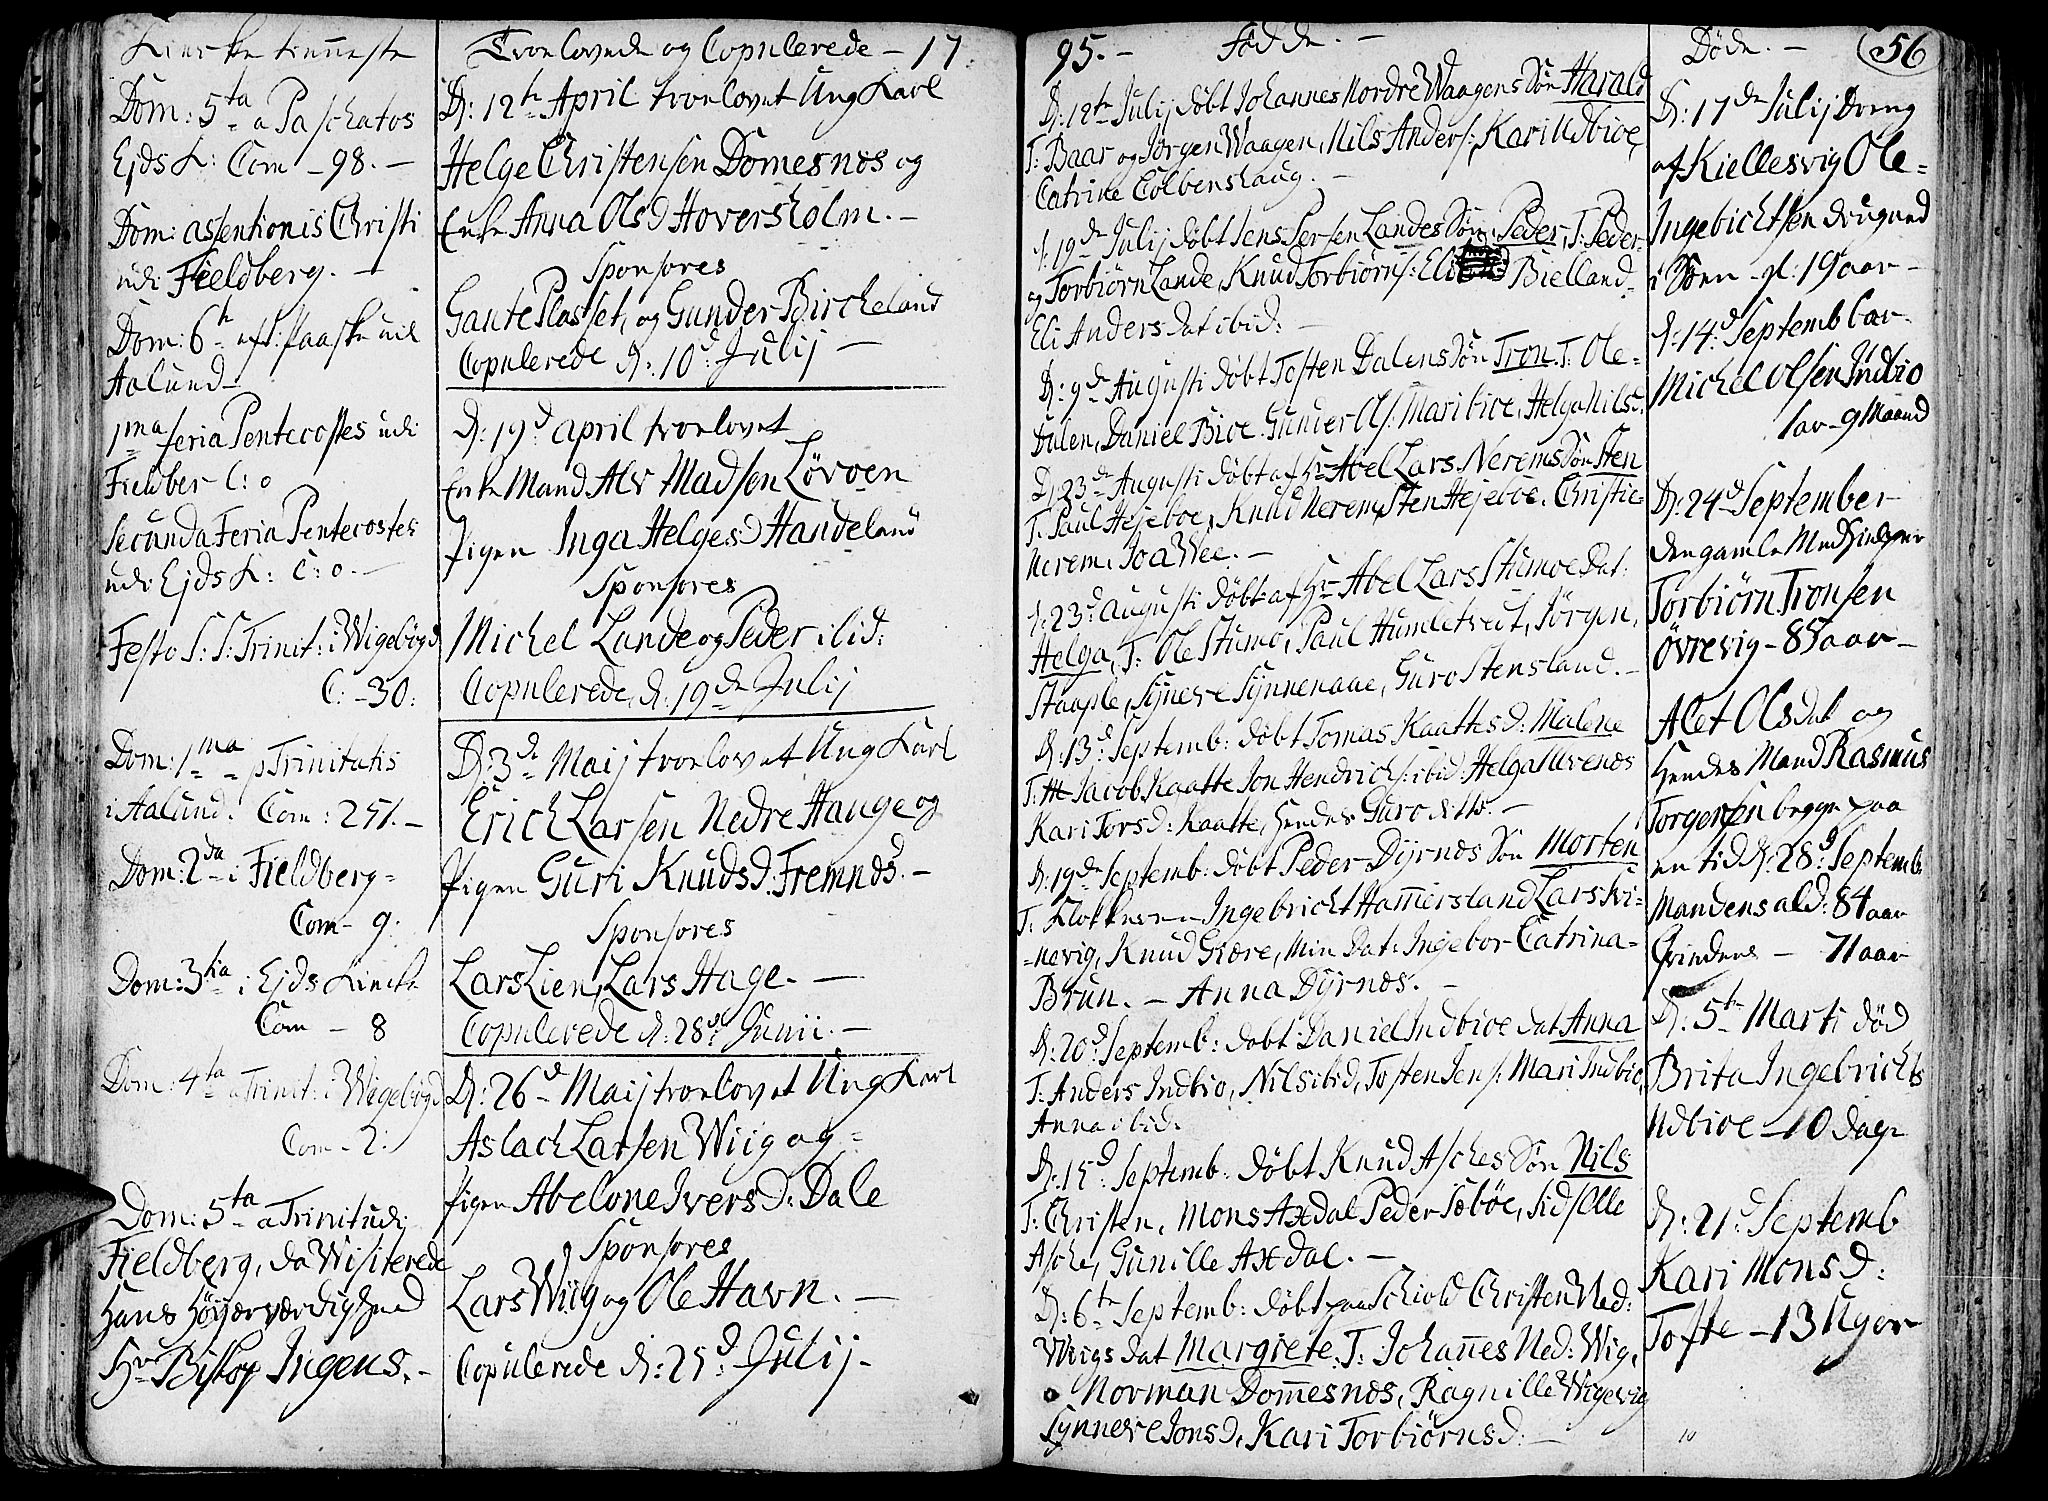 Kirke tienneste
Dom: 5ta a Paschatos
Ejds K: Com - 98. -
Dom: assentionis Christi
udi Fieldberg. -
Dom: 6te eft: Paaske udi
Aalund -
1ma feria Pentecostes udi
Fieldber C: 0
Secunda Feria Pentecostes
udi Ejds K: C: 0. -
Festo S: S: Trinit: i Wigebögd
C: - 30:
Dom: 1ma p Trinitatis
i Aalund. Com: 251. -
Dom: 2da i Fieldberg -
Com - 9.
Dom: 3tia i Ejds Kircke
Com - 8
Dom: 4ta a Trinit: i Wigebögd
Com - 2:
Dom: 5ta a Trinit udi
Fieldberg, da Wisiterede
Hans Höyærværdighed
Hr Biskop Irgens. -
Troelovede og Copulerede - 17
D: 12te April troelovet Ung Karl
Helge Christensen Domesnes og
Enke Anna Olsd Hoversholm. -
Sponsores
Gaute Plasset, og Gunder Bircheland
Copulerede d: 10d Julij -
D: 19d april troelovet
Enke Mand Alv Madsen Lövoen
Pigen Inga Helgesd Handeland
Sponsores
Michel Lande og Peder ibid:
Copulerede, d: 19de Julij
D: 3de Maij troelovet Ung Karl
Erich Larsen Nedre Hauge og
Pigen Guri Knudsd. Fremnes. -
Sponsores
Lars Lien, Lars Hage. -
Copulerede d: 28d Junii. -
D: 26d Maij troelovet Ung Karl
Aslach Larsen Wiig og =
Pigen Abelone Iversd: Dale
Sponsores
Lars Wiig og Ole Havn. -
Copulerede d: 25d Julij -
95. - Födde. -
D: 12te Julij döbt Johannes Nordre Waagens Sön Harald
T: Baar og Jörgen Waagen, Nils Anders: Kari Udbioe,
Catrine Colbenshaug. -
d: 19de Julij döbt Jens Persen Landes Sön Peder, T: Peder
og Torbiörn Lande, Knud Torbiörns: Eli Bielland -
Eli Anders dat ibid: -
D: 9de Augusti döbt Tosten Dalens Sön Tron T: Ole =
Dalen, Daniel Bioe. Gunder Ols: Mari bioe, Helga Nilsd,
D: 23de Augusti döbt af Hr Abel Lars Nerems Sön Sten
T. Paul Hejeboe, Knud Nerem, Sten Hejeboe, Christie
Nerem, Joa Wee. -
d: 23d augusti döbt af Hr Abel Lars Stumoe Dat:
Helga, T: Ole Stumo, Paul Humletvedt, Jörgen,
Staaple, Syneve Synnenaae, Guro Stensland. -
D: 13d Septemb: döbt Tomas Kaattes d: Malene
T: Jacob Kaatte Jon Hendrichs: ibid: Helga Ulvenes
Kari Torsd: Kaatte, Guro
D: 19de Septemb: döbt Peder Dÿrnes Sön Morten
T. Klokkeren Ingebricht Hammersland Lars Ki=
=nevig, Knud Giære, Min Dat: Ingebor Catrina =
Brun. - Anna Dÿrnes. -
D: 20d Septemb: döbt Daniel Indbioe dat Anna
T: Anders Indbio, Nils ibid, Tosten Jens: Mari Indbio,
Anna ibid.
D: 15d Septemb: döbt Knud Asches Sön Nils
T: Christen, Mons Axdal Peder Sæböe, Sidselle
Asche, Gunille Axdal. -
D: 6te Septemb: döbt paa Schiold Christen Ned:
Wiigs dat Margrete. T: Johannes Ned: Wig,
Norman Dommesnes, Ragnille Wigevig
Synneve Jonsd, Kari Torbiörnsd: -
Döde. - 56
D: 17de Julij Dreng
af Kiellesvig Ole =
Ingebrichtsen drugned
i Söen - gl: 19 aar -
d: 14d Septemb
Michel Olsen Indbio
1 aar - 9 Maaned
D: 24d September
den gamle
Torbiörn Tronsen
Övrevig - 85 aar -
Alet Olsdat og
Hendes Mand Rasmus
Torgersen begge paa
en tid D: 28d Septemb
Mandens ald: 84 aar
Qvindens - 71 aar
D: 5te Marti död
Brita Ingebrichts
Udbioe - 10 dage
D: 21d Septemb
Kari Monsd:
Tofte - 13 Uger